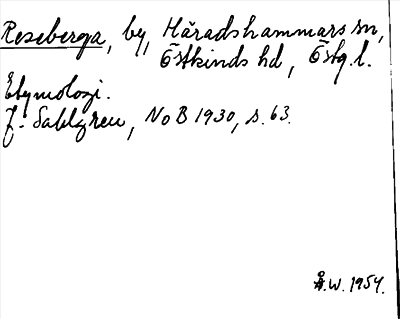 Reseberga, by, Häradshammars sn,
Östkinds hd, Östg.l.
Etymologi.
J. Sahlgren, NoB 1930, s. 63.
Å.W. 1954.